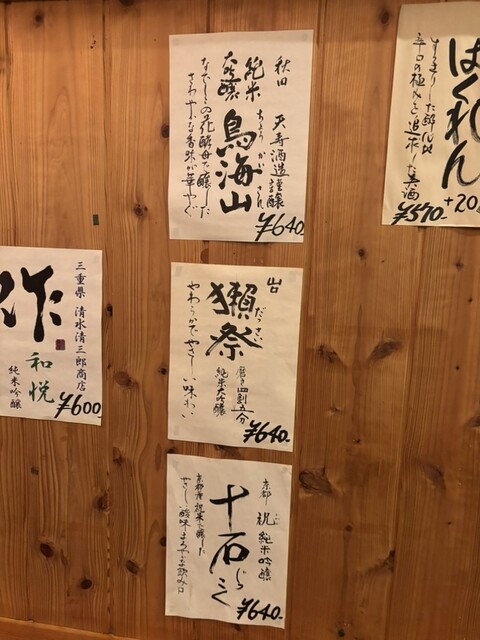 秋田 天寿酒造謹醸
純米
大吟醸
鳥海山
ちょうかいさん
なでしこの花酵母で醸した
さわやかな香味が華やぐ
¥640-
はくれん
+20
すっきりした酔い心地
辛口の極みを追求した美酒
¥570-
三重県 清水清三郎商店
作
和悦
純米吟醸
¥600-
山口
獺祭
だっさい
磨き四割五分
純米大吟醸
やわらかでやさしい味わい
¥640-
京都 祝 純米吟醸
十石
京都産祝米で醸した
¥640-